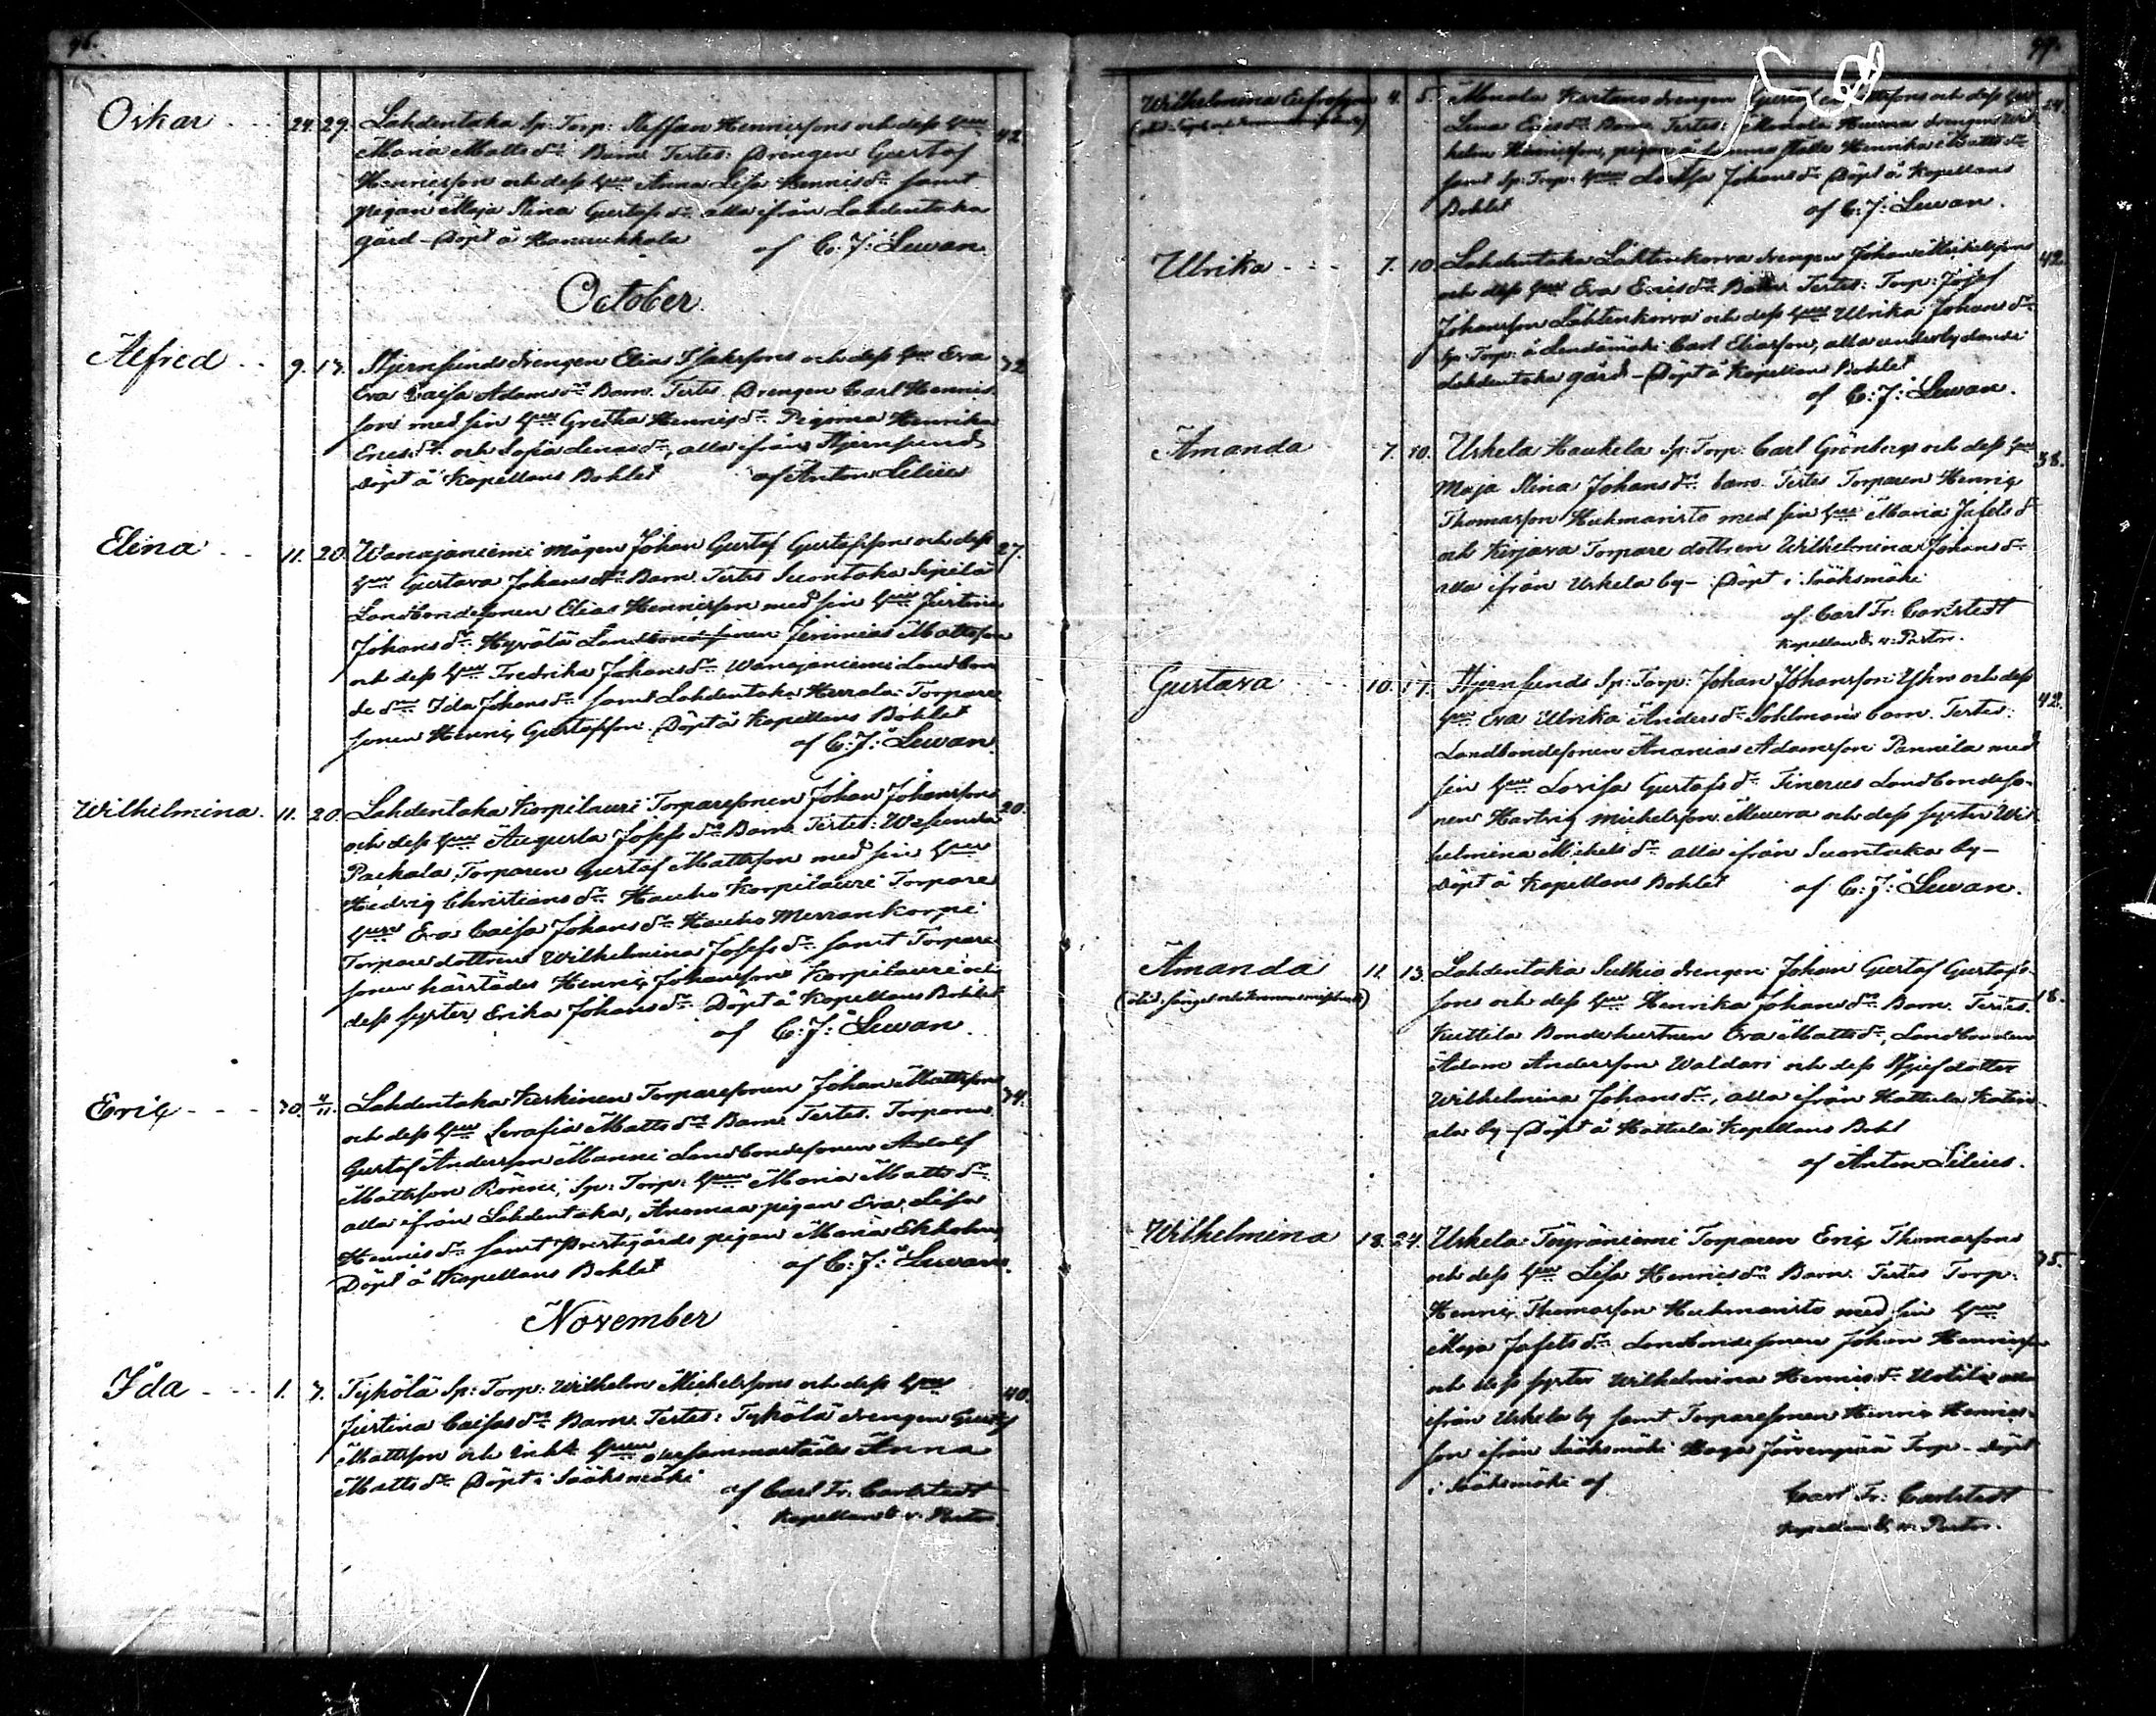 96.
Oskar 24. 29. Lahdentaka Sp: Torp: Steffan Henricsons och dess hust 42
Maria Matts dr Barn. Testes: Drengen Gustaf
Henricsson och dess hust Anna Lisa Henrics dr samt
pigan Maja Stina Gustafs dr alla ifrån Lahdentaka
gård - Döpt å
af C: J: Lewan.
October.
Alfred 9. 17. Stjernsunds drengen Elias Isakssons och dess hu Eva 32
Eva Caisa Adams dr Barn. Testes Drengen Carl Henrics
son med sin hust Gretha Henrics dr Pigorna Henrika
Erics dr och Sofia Lenas dr, alla ifrån Stjernsund
Döpt å Kapellans Bohlet af Anton Lilius
Elina 11. 20. Wanajaniemi mågen Johan Gustaf Gustafsson och dess 27.
hust Gustava Johans dr Barn. Testes Suontaka Sipilä
Landbondesonen Elias Henricsson med sin hust Justina
Johans dr Hyrölä Landbondesonen Jeremias Mattsson
och dess hust Fredrika Johans dr Wanajaniemi Landbon
de dr Ida Johans dr samt Lahdentaka Torpare
sonen Henric Gustafsson. Döpt å Kapellans Bohlet
af C: J: Lewan.
Wilhelmina. 11. 20. Lahdentaka Korpilauri Torparesonen Johan Johanssons 20.
och dess hust Augusta Josefs dr Barn. Testes:
Torparen Gustaf Mattsson med sin hust
Hedvig Christians dr Hauho Korpilauri Torpare
hust Eva Caisa Johans dr Hauho
Torparedottren Wilhelmina Josefs dr samt Torpare
sonen härstädes Henric Johansson Korpilauri och
dess syster Erika Johans dr Döpt å Kapellans Bohlet
af C: J: Lewan.
Eric 30. 4/11. Lahdentaka Kerkinen Torparesonen Johan Mattssons 34.
och dess hust Serafia Matts dr Barn. Testes. Torparen
Gustaf Andersson Manni Landbondesonen Adolf
Mattsson Rönni, Sp: Torp: hust Maria Matts dr
alla ifrån Lahdentaka, pigan Eva Lisa
Henrics dr samt Prestgårds pigan Maria Ekholm
Döpt å Kapellans Bohlet af C: J: Lewan.
November
Ida 1. 7. Tykölä Sp: Torp: Wilhelm Michelssons och dess hust 40.
Justina Caisas dr Barn. Testes: Tykölä drengen Gustaf
Mattsson och hust Anna
Matts dr Döpt i Sääksmäki
af Carl Fr. Carlstedt
Kapellan & v. Pastor.
97.
Wilhelmina Eufrosyna 4. 5. drengen och dess hust 24.
Lena Erics dr Barn. Testes: drengen Wil-
helm Henricsson, pigan å samma ställe Henrika Matts dr
samt Sp: Torp: hust Lovisa Johans dr Döpt å Kapellans
Bohlet af C: J: Lewan.
Ulrika 7. 10 Lahdentaka Lähtenkorva drengen Johan Michelssons 42.
och dess hust Eva Erics dr Barn. Testes: Torp: Josef
Johansson Lähtenkorva och dess hust Ulrika Johans dr
Sp: Torp: å Lendämäki Carl Eliasson, alla underlydande
Lahdentaka gård - Döpt å Kapellans Bohlet
af C: J: Lewan.
Amanda 7. 10. Urkela Haukela Sp: Torp: Carl Grönbergs och dess hust 38.
Maja Stina Johans dr barn. Testes Torparen Henric
Thomasson Huhmaristo med sin hust Maria Jafets dr
och Kirjava Torpare dottren Wilhelmina Johans dr
alla ifrån Urkela by - Döpt i Sääksmäki
af Carl Fr. Carlstedt
Kapellan & v. Pastor.
Gustava 10. 17. Stjernsunds Sp: Torp: Johan Johansson och dess 42.
hust Eva Ulrika Anders dr Sohlmans barn. Testes:
Landbondesonen Ananias Adamsson Pannila med
sin hust Lovisa Gustafs dr Landbondeso-
nen Hartvig Michelsson och dess syster Wil
helmina Michels dr alla ifrån Suontaka by -
Döpt å Kapellans Bohlet af C: J: Lewan.
Amanda 11. 13. Lahdentaka drengen Johan Gustaf Gustafs- 18.
sons och dess hust Henrika Johans dr Barn. Testes.
Kuttila Bonde hustrun Eva Matts dr, Landbonden
Adam Andersson Waldari och dess Stjufdotter
Wilhelmina Johans dr, alla ifrån Hattula Katin-
ala by - Döpt å Hattula Kapellans Bohl
af Anton Lilius.
Wilhelmina 18. 24. Urkela Töyräniemi Torparen Eric Thomassons 35.
och dess hust Lisa Henrics dr Barn. Testes Torp:
Henric Thomasson Huhmaristo med sin hust
Maja Jafets dr Landbondesonen Johan Henricsson
och dess syster Wilhelmina Henrics dr Uotila alla
ifrån Urkela by samt Torparesonen Henric Henrics-
son ifrån Sääksmäki Haga Järvenpää Torp - döpt
i Sääksmäki af
Carl Fr: Carlstedt
Kapellan & v. Pastor.